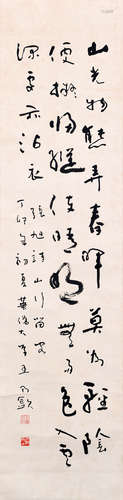 山光物態弄春暉莫為輕陰
便擬歸縱使晴明無雨色入雲
深處亦沾衣
張旭詩山行留客
丁卯年初夏